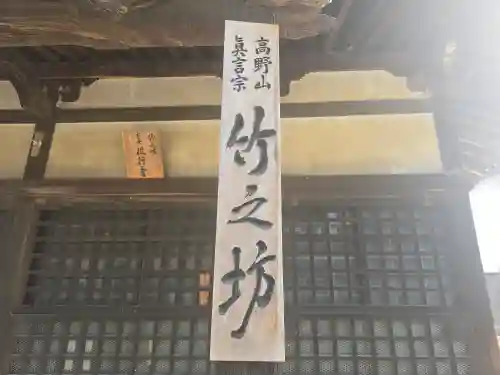 高野山
眞言宗
竹之坊